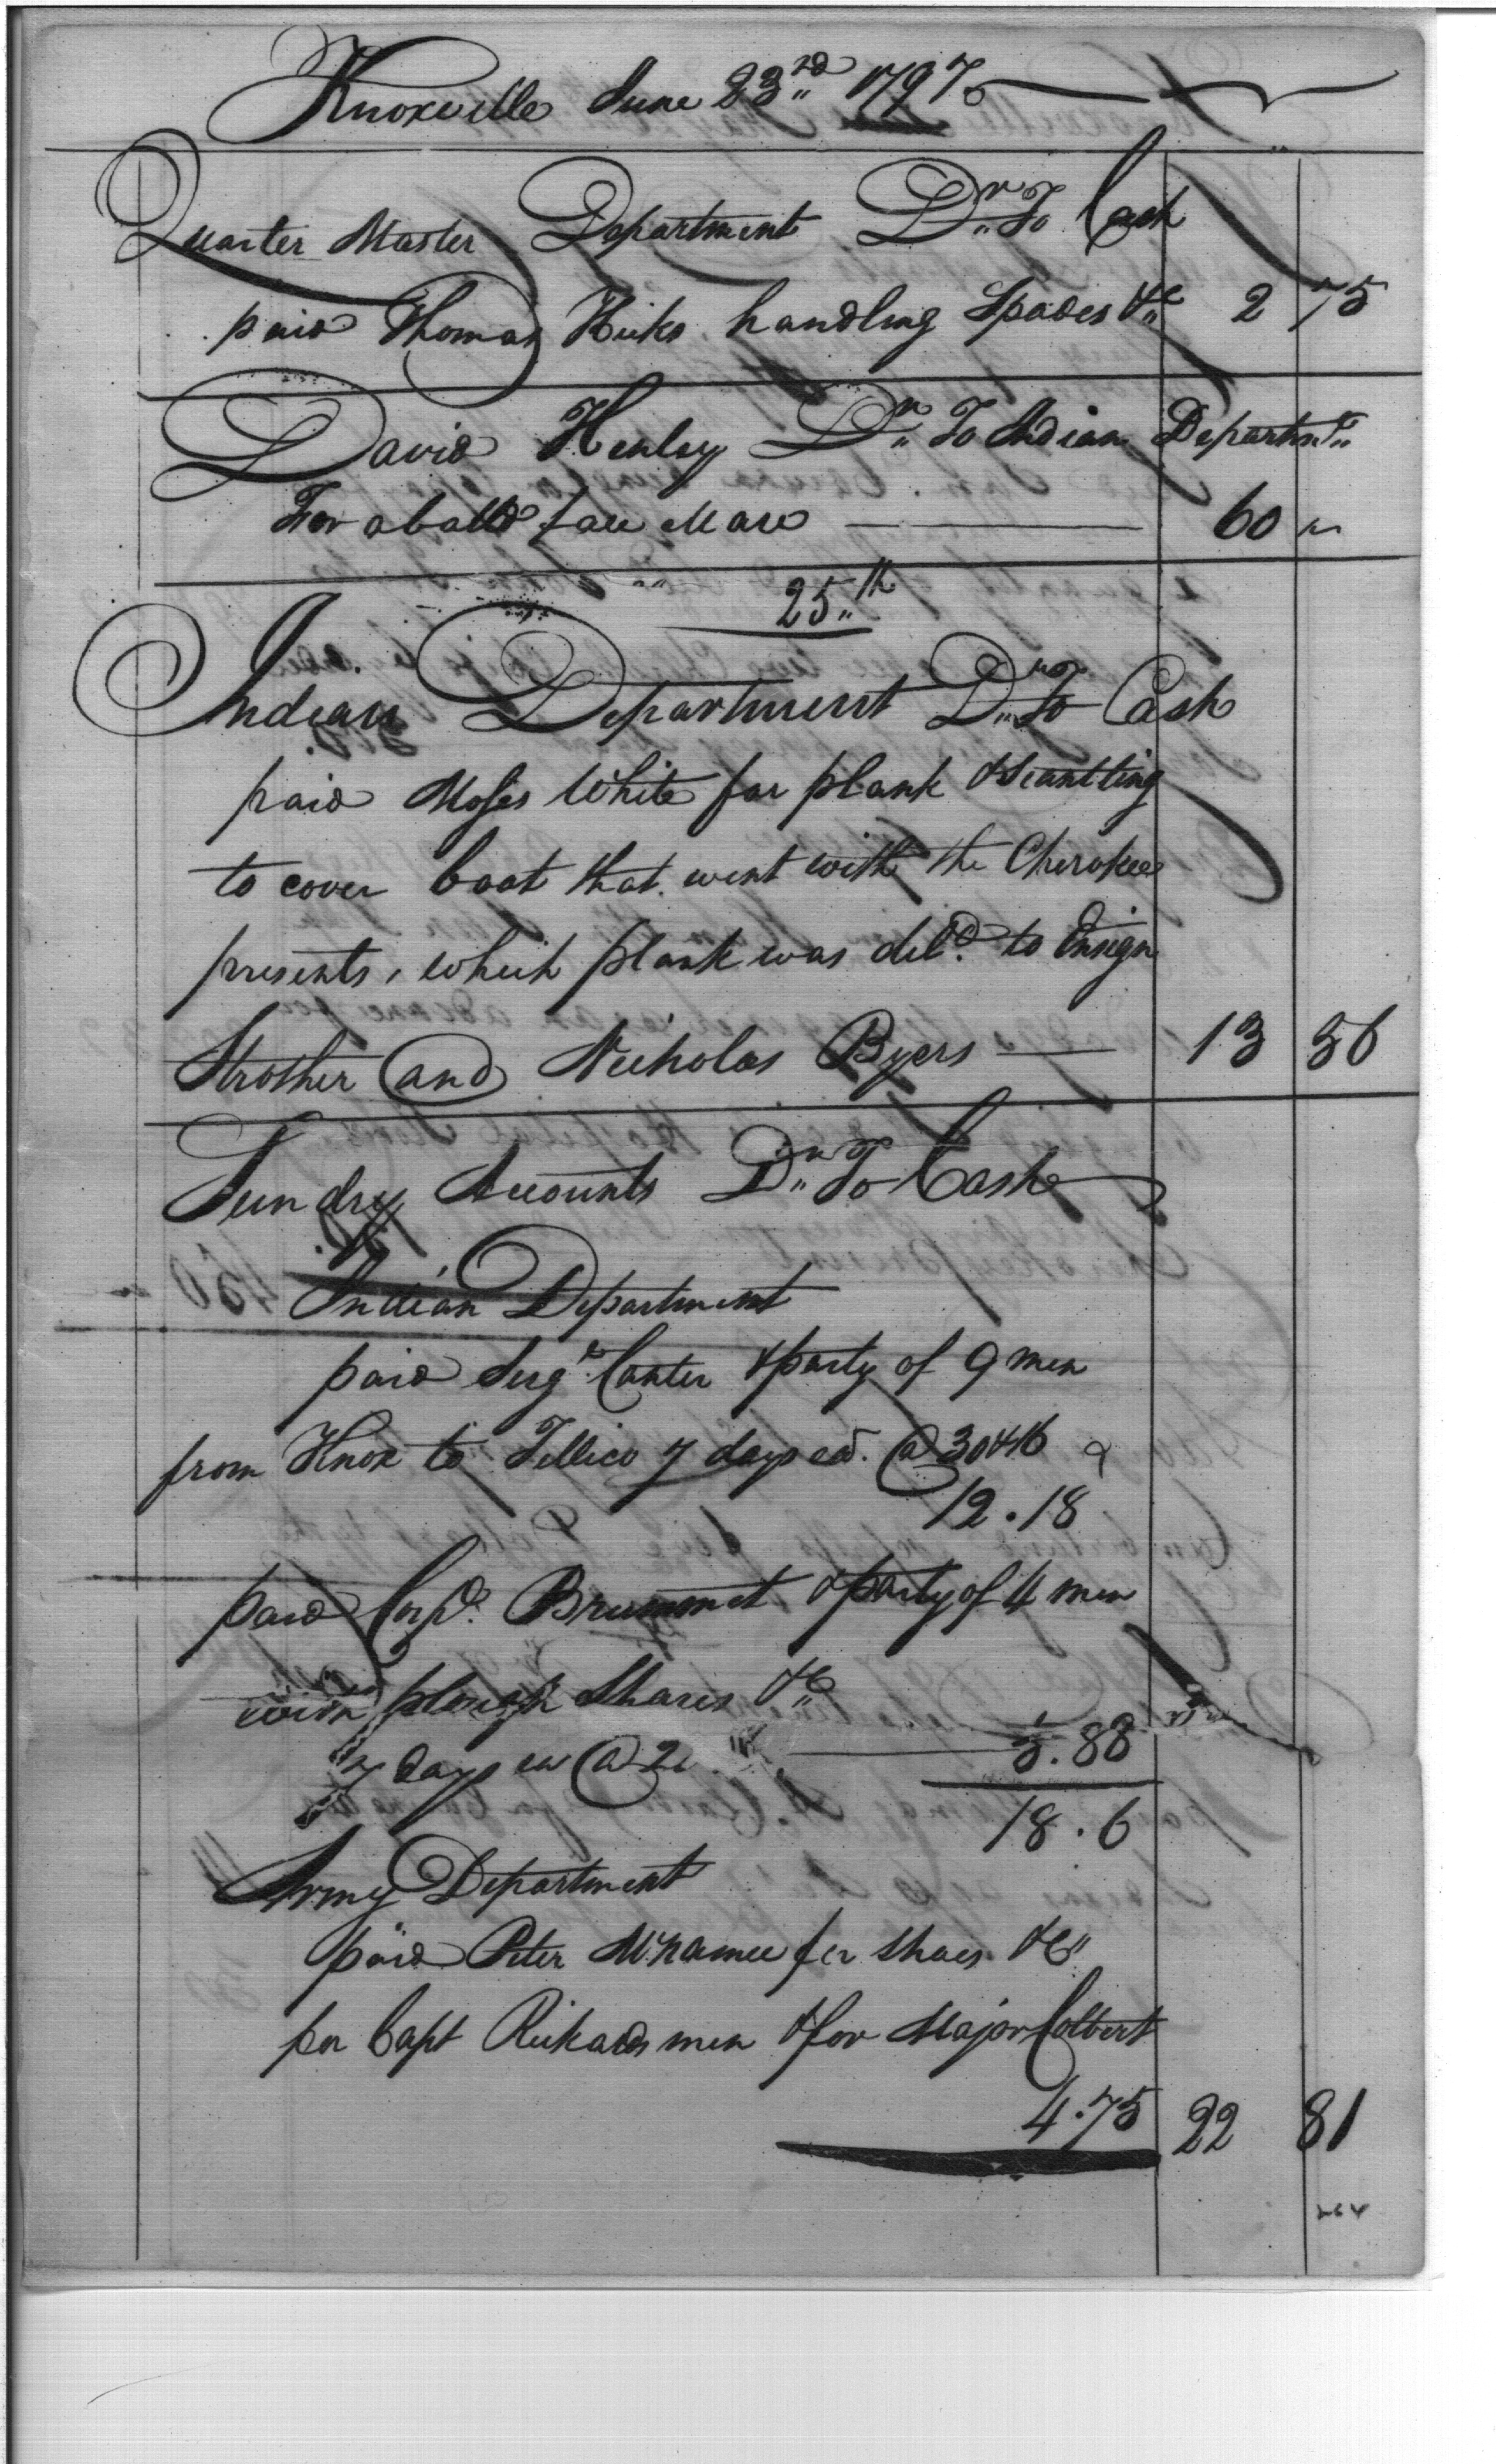 Knoxville June 23rd 1797
Quarter Master Department Dr To Cash
paid Thomas Hicks handling Spades &c 2 75
David Henley Dr To Indian Departmt
For a balld face Mare 60 "
25th
Indian Department Dr To Cash
paid Moses White for plank & Scantling
to cover boat that went with the Cherokee
presents, which plank was deld. to Ensign
Strother and Nicholas Byers 13 56
Sundry Accounts Dr To Cash
Indian Department
paid Sergt Canter & party of 9 men
from Knox to Tellico 7 days ea. @
12.18
paid Corpl. Brummet & party of 4 men
with plough Shares &c
7 days ea @ 5.88
18.6
Army Department
paid Peter McNamee for Shoes &c
per Capt Rickards men & for Major Colbert
4.75 22 81